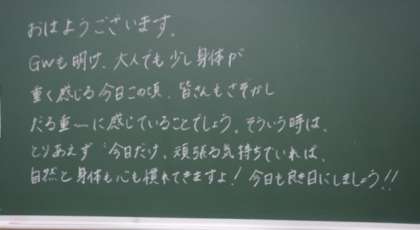 おはようございます。
GWも明け、大人でも少し身体が
重く感じる今日この頃、皆さんもさぞかし
だる重〜に感じていることでしょう。そういう時は、
とりあえず“今日だけ”頑張る気持ちでいれば、
自然と身体も心も慣れてきますよ！今日も良き日にしましょう!!